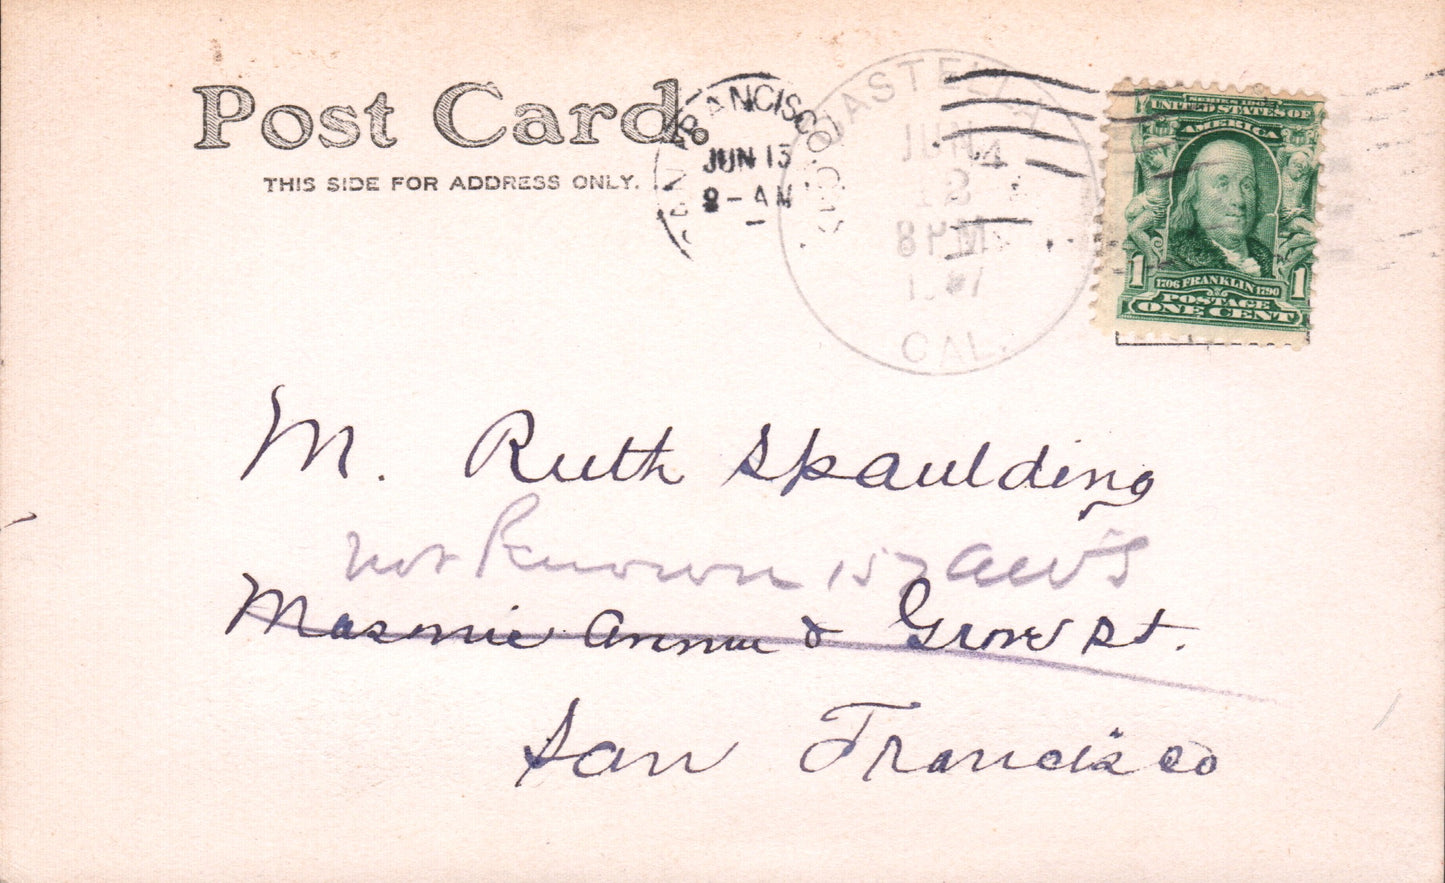 Post Card.
THIS SIDE FOR ADDRESS ONLY.
SAN FRANCISCO, CAL.
JUN 13
8-AM
CASTELLA
JUN
12
8PM
CAL.
SERIES 1902
UNITED STATES OF
AMERICA
1 1
1706 FRANKLIN 1790
POSTAGE
ONE CENT
M. Ruth Spaulding
not Known 157
Masonic Annue & Grove St.
San Francisco